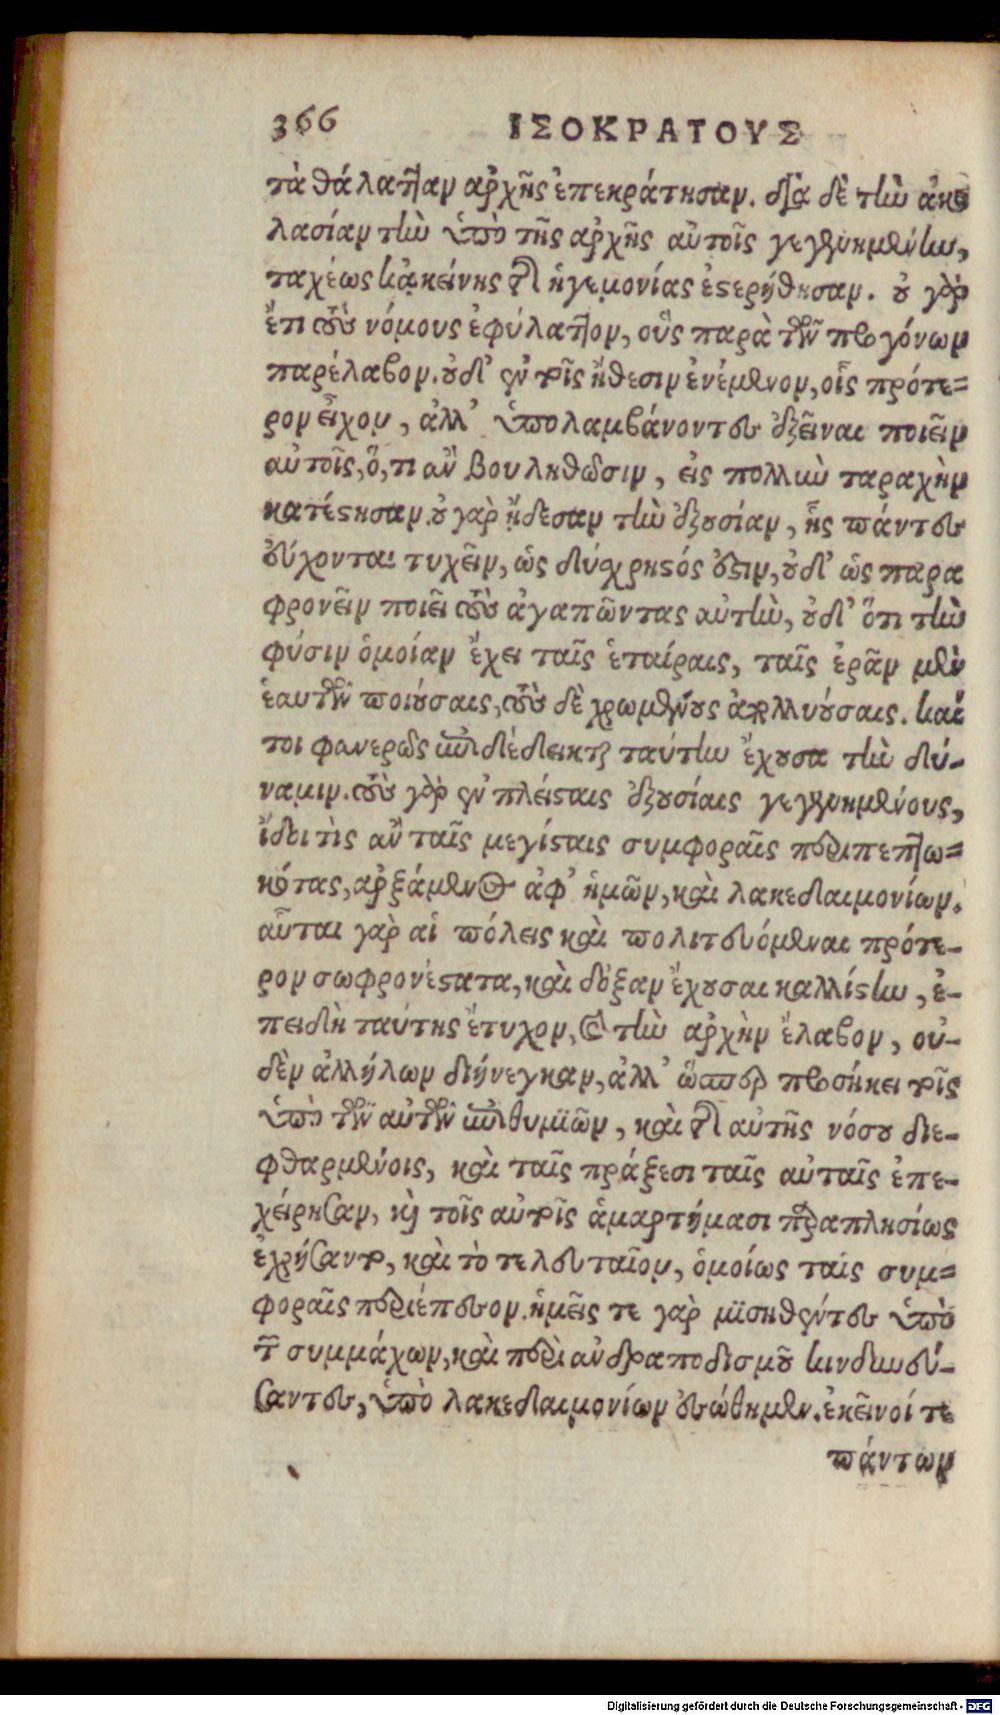 366 ΙΣΟΚΡΑΤΟΥΣ
τὰ θάλατῆαν ἀρχῆς ἐπεκράτησαν. διὰ δὲ τὴν ἀκο
λασίαν τὴν ὑπὸ τῆς ἀρχῆς αὐτοῖς γεγενημένην,
ταχέως κἀκείνης τῆς ἡγεμονίας ἐστερήθησαν. οὐ γὰρ
ἔτι τοὺς νόμους ἐφύλαττον, οὓς παρὰ τῶν προγόνων
παρέλαβον. οὐδ' ἐν τοῖς ἤθεσιν ἐνέμενον, οἷς πρότε=
ρον εἶχον, ἀλλ' ὑπολαμβάνοντες ἐξεῖναι ποιεῖν
αὐτοῖς, ὅ, τι ἂν βουληθῶσιν, εἰς πολλὴν ταραχὴν
κατέστησαν. οὐ γὰρ ᾔδεσαν τὴν ἐξουσίαν, ἧς πάντες
εὔχονται τυχεῖν, ὡς δύσχρηστός ἐστιν, οὐδ' ὡς παρα
φρονεῖν ποιεῖ τοὺς ἀγαπῶντας αὐτὴν, οὐδ' ὅτι τὴν
φύσιν ὁμοίαν ἔχει ταῖς ἑταίραις, ταῖς ἐρᾶν μὲν
ἑαυτῶν ποιούσαις, τοὺς δὲ χρωμένους ἀπολλυούσαις. καί
τοι φανερῶς ἐπιδέδεικται ταύτην ἔχουσα τὴν δύ-
ναμιν. τοὺς γὰρ ἐν πλείσταις ἐξουσίαις γεγενημένους,
ἴδοι τὶς ἂν ταῖς μεγίσταις συμφοραῖς περιπεπτω=
κότας, ἀρξάμενος ἀφ' ἡμῶν, καὶ λακεδαιμονίων.
αὗται γὰρ αἱ πόλεις καὶ πολιτευόμεναι πρότε-
ρον σωφρονέστατα, καὶ δόξαν ἔχουσαι καλλίστην, ἐ-
πειδὴ ταύτης ἔτυχον, καὶ τὴν ἀρχὴν ἔλαβον, οὐ-
δὲν ἀλλήλων διήνεγκαν, ἀλλ' ὥσπερ προσήκει τοῖς
ὑπὸ τῶν αὐτῶν ἐπιθυμιῶν, καὶ τῆς αὐτῆς νόσου διε-
φθαρμένοις, καὶ ταῖς πράξεσι ταῖς αὐταῖς ἐπε-
χείρησαν, καὶ τοῖς αὐτοῖς ἁμαρτήμασι παραπλησίως
ἐχρήσαντο, καὶ τὸ τελευταῖον, ὁμοίως ταῖς συμ=
φοραῖς περιέπεσον. ἡμεῖς τε γὰρ μισηθέντες ὑπὸ
τῶν συμμάχων, καὶ περὶ ἀνδραποδισμοῦ κινδυνεύ-
σαντες, ὑπὸ λακεδαιμονίων ἐσώθημεν. ἐκεῖνοί τε
πάντων
Digitalisierung gefördert durch die Deutsche Forschungsgemeinschaft - DFG